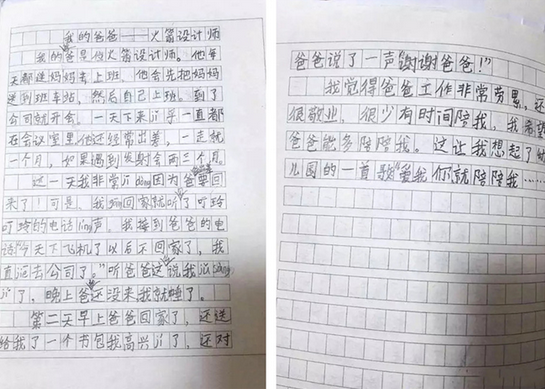 我的爸爸——火箭设计师
我的爸是位火箭设计师。他每
天都送妈妈去上班。他会先把妈妈
送到班车站，然后自己上班。到了
公司就开会。一天下来jī乎一直都
在会议室里他还经常出差，一走就
一个月，如果遇到发射会两三个月
这一天我非常jī dòng因为爸要回
来了！可是，我回家就听了叮玲
叮玲的电话líng声。我接到爸爸的电
话“今天下飞机了以后不回家了，我
直jiē去公司了。”听爸爸这说我
jí了，晚上爸还没来我就睡了。
第二天早上爸爸回家了，还送
给我了一个书包我高兴jí了，还对
爸爸说了一声“谢谢爸爸！”
我觉得爸爸工作非常劳累，还
很敬业，很少有时间陪我，我希望
爸爸能多陪陪我。这让我想起了幼
儿园的一首歌“爱我你就陪陪我……